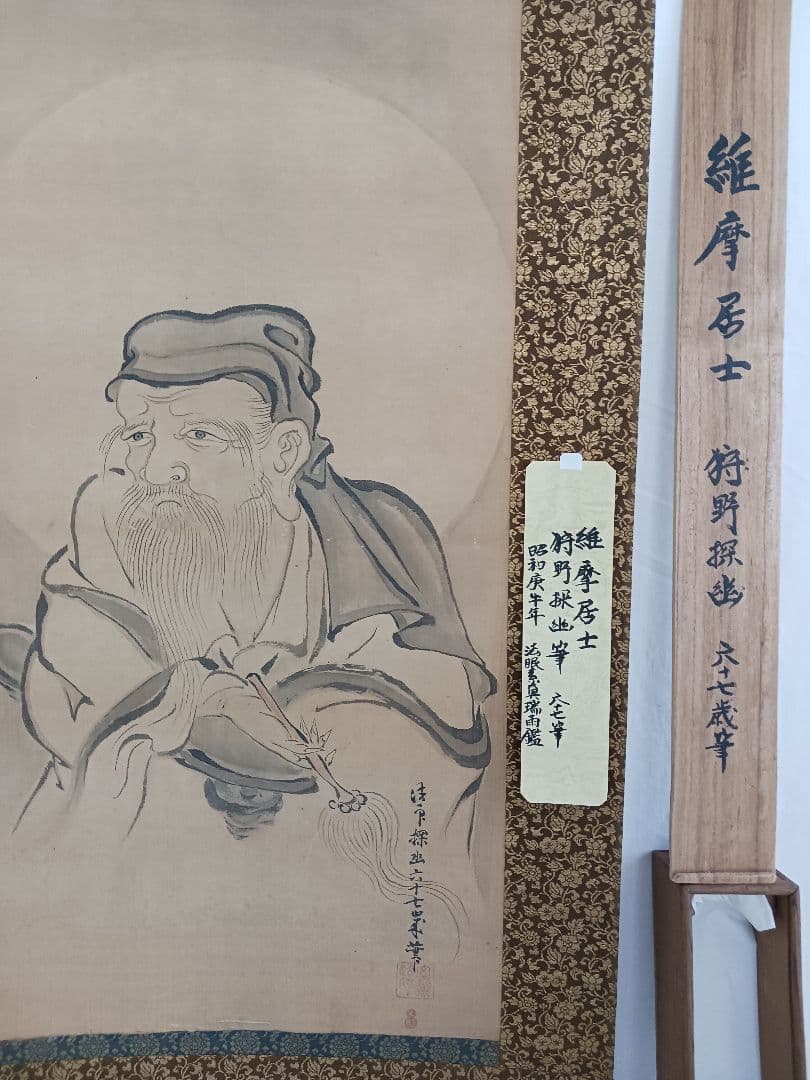 維摩居士 狩野探幽 六十七歳筆
維摩居士
狩野探幽筆 六十七筆
昭和庚午年 法眼素真瑞雨鑑
法印探幽六十七歳筆